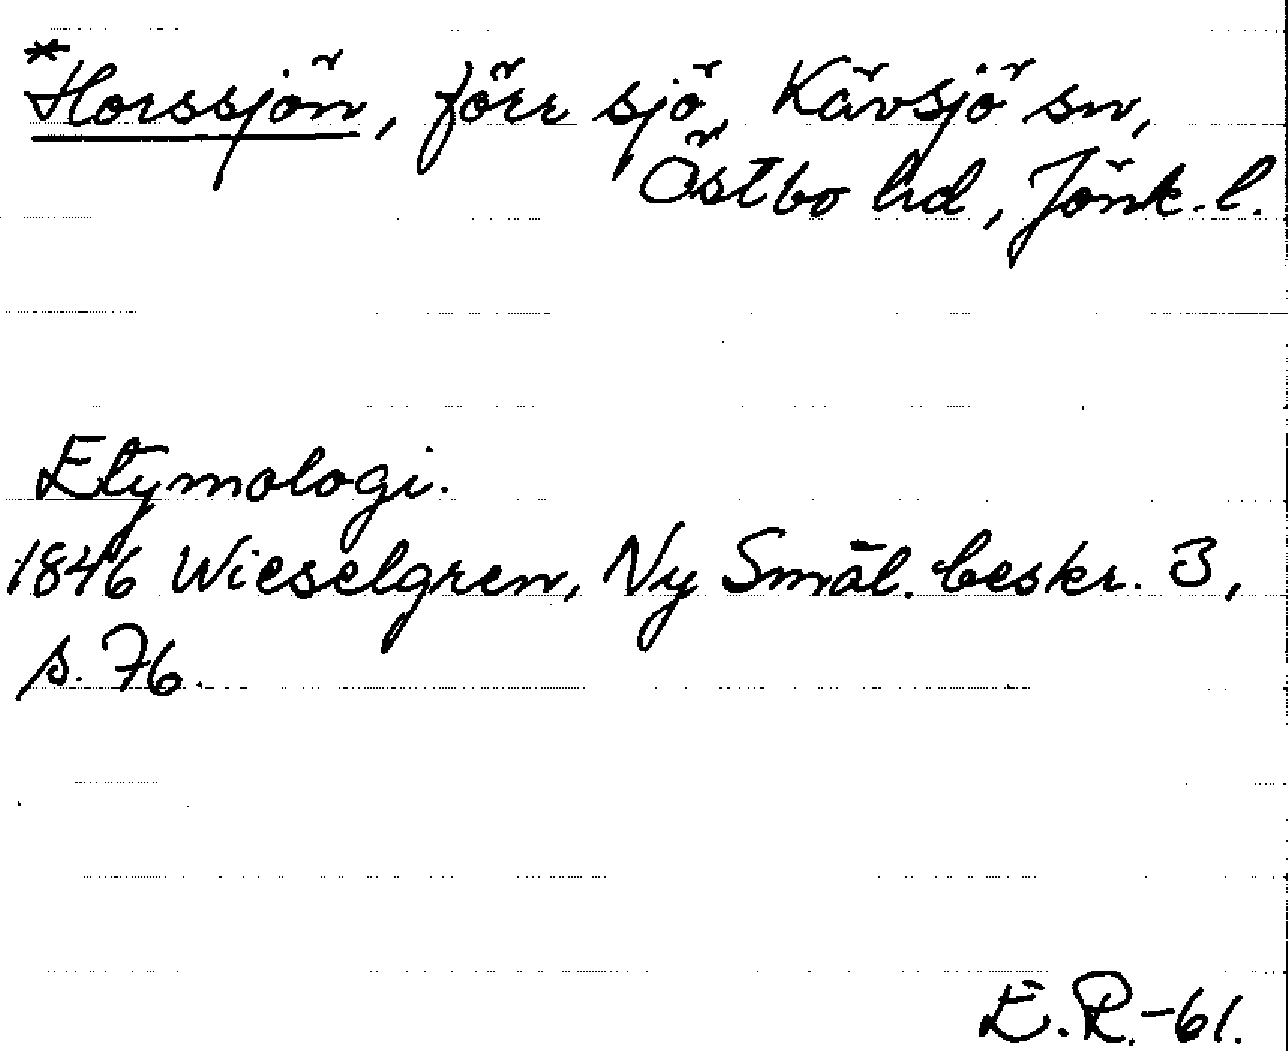 *Horssjön, förr sjö, Kävsjö sn,
Östbo hd, Jönk. l.
Etymologi.
1846 Wieselgren, Ny Smål. beskr. 3,
s. 76.
E. R. -61.